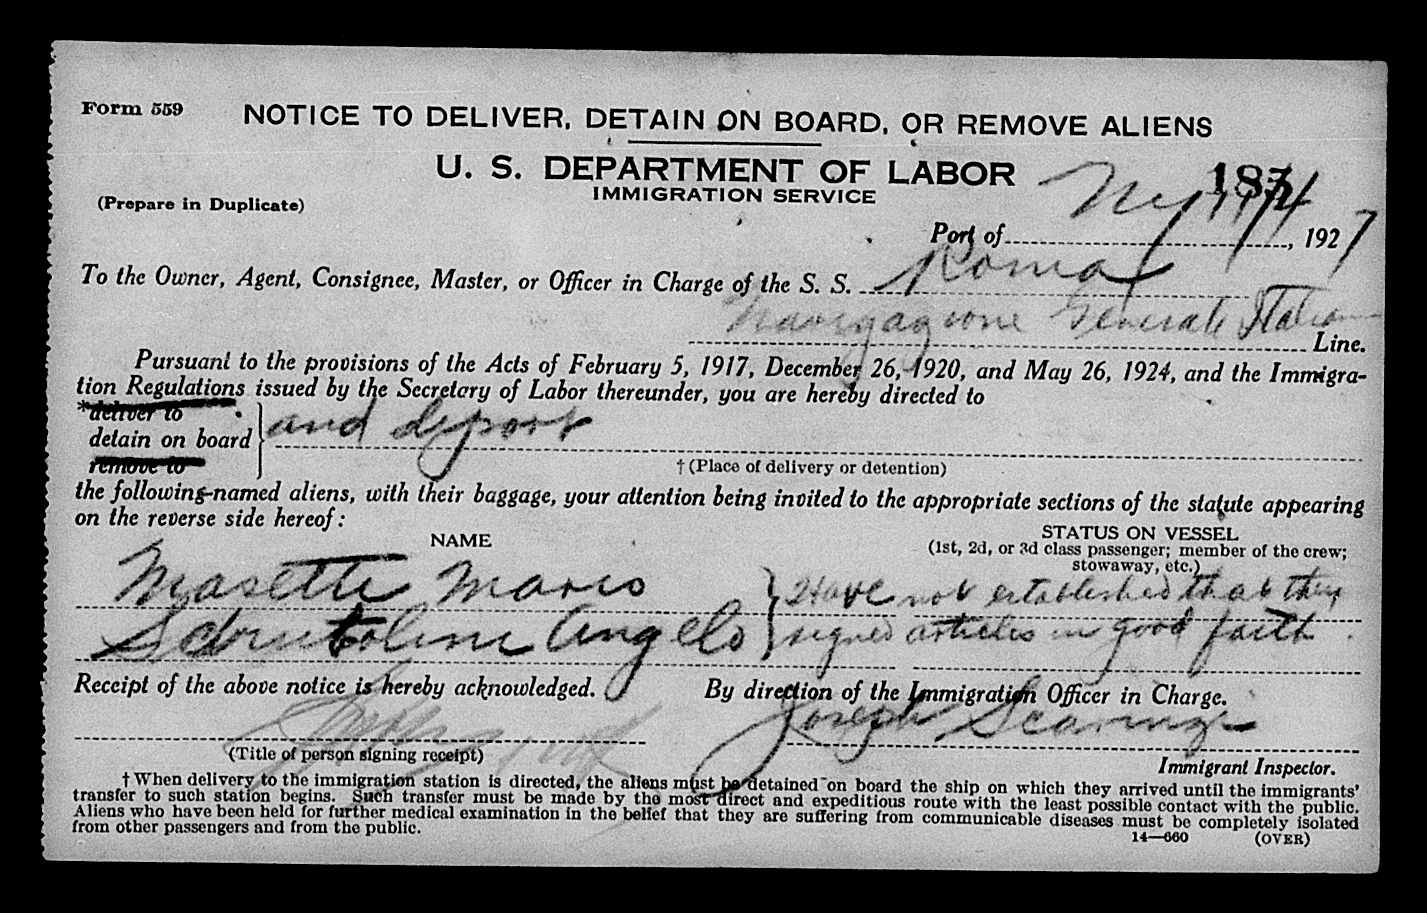 Form 559
NOTICE TO DELIVER, DETAIN ON BOARD, OR REMOVE ALIENS
U. S. DEPARTMENT OF LABOR
IMMIGRATION SERVICE
(Prepare in Duplicate)
Port of NY 14, 1927
To the Owner, Agent, Consignee, Master, or Officer in Charge of the S. S. Roma
Navigazione Generale Italiana Line.
Pursuant to the provisions of the Acts of February 5, 1917, December 26, 1920, and May 26, 1924, and the Immigra-
tion Regulations issued by the Secretary of Labor thereunder, you are hereby directed to
*deliver to
detain on board } and deport
remove to
† (Place of delivery or detention)
the following-named aliens, with their baggage, your attention being invited to the appropriate sections of the statute appearing
on the reverse side hereof:
NAME
STATUS ON VESSEL
(1st, 2d, or 3d class passenger; member of the crew;
stowaway, etc.)
Masetti Mario } Have not established that they
Angelo } signed articles in good faith.
Receipt of the above notice is hereby acknowledged.
By direction of the Immigration Officer in Charge.
Joseph Scaringi
(Title of person signing receipt)
Immigrant Inspector.
† When delivery to the immigration station is directed, the aliens must be detained on board the ship on which they arrived until the immigrants'
transfer to such station begins. Such transfer must be made by the most direct and expeditious route with the least possible contact with the public.
Aliens who have been held for further medical examination in the belief that they are suffering from communicable diseases must be completely isolated
from other passengers and from the public.
14—660
(OVER)